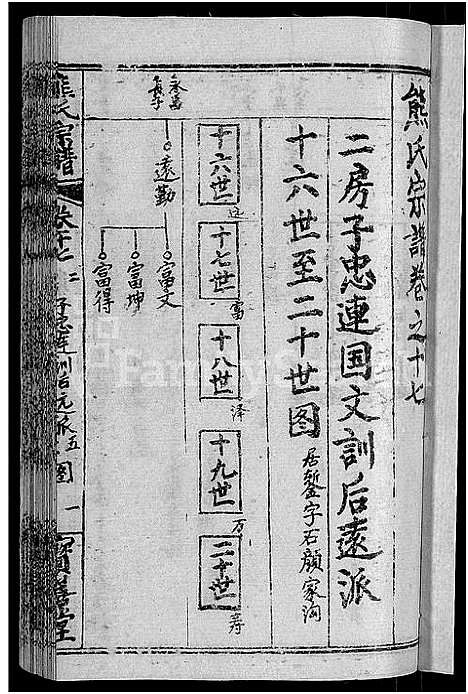 熊氏宗譜卷之十七
二房子忠連国文訓后遠派
十六世至二十世图
居鏨字石顔家沟
十六世
遠
十七世
富
十八世
泽
十九世
万
二十世
寿
永富
長子
遠勤
富文
富坤
富得
熊氏宗譜
卷十七
子忠連訓后元派五图
一